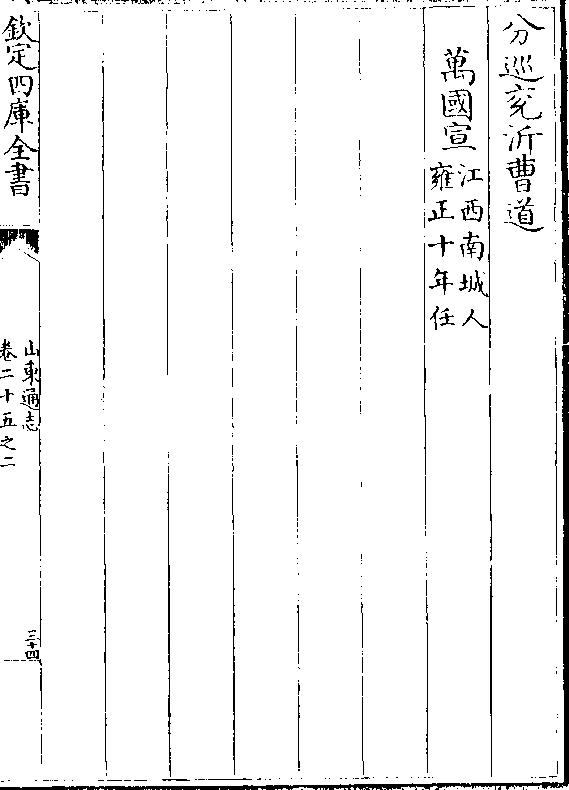 分巡兖沂曹道
萬國宣
江西南城人
雍正十年任
欽定四庫全書
山東通志
卷二十五之二
三十四